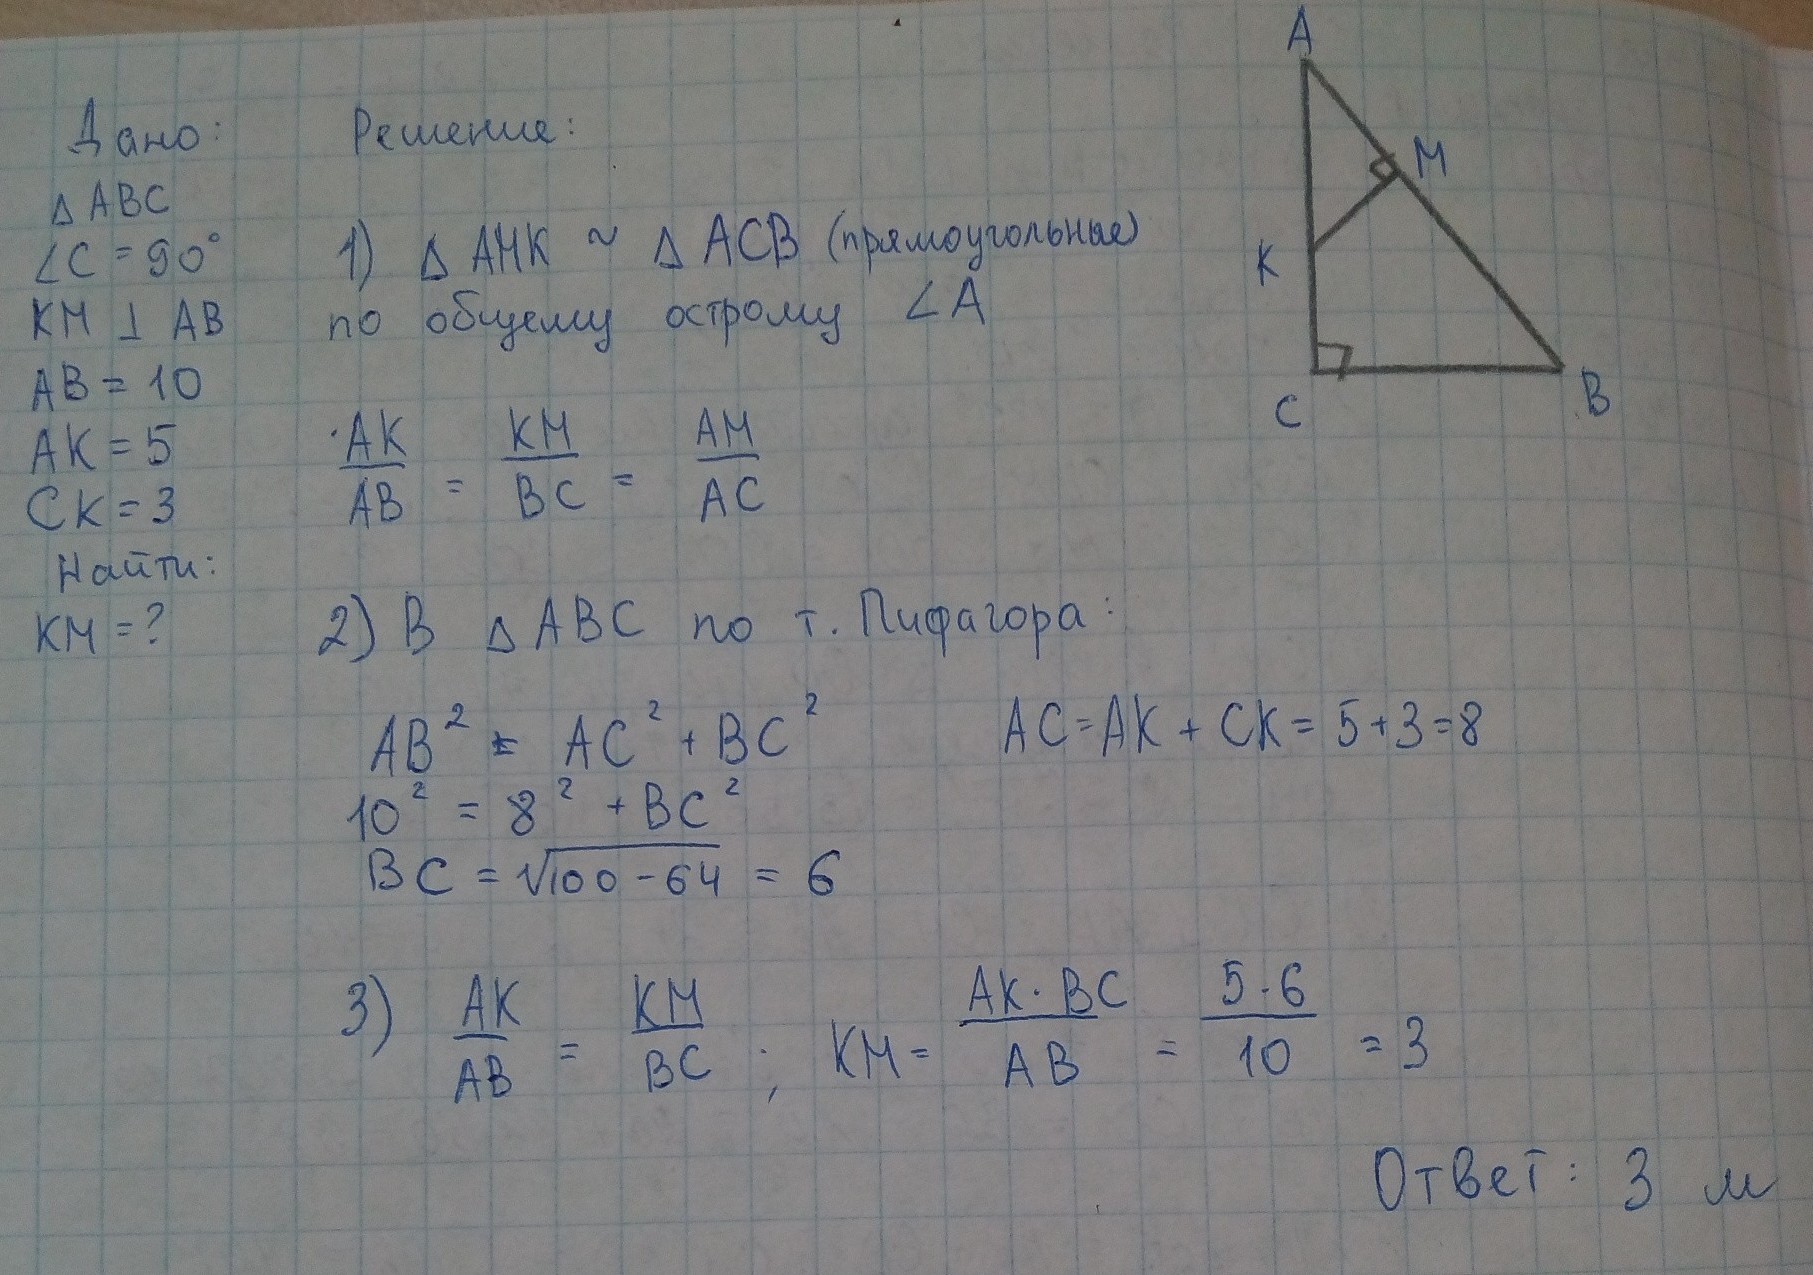 Дано:
△ ABC
∠C = 90°
KM ⊥ AB
AB = 10
AK = 5
CK = 3
Найти:
KM = ?
Решение:
1) △ AMK ~ △ ACB (прямоугольные)
по общему острому ∠A
AK/AB = KM/BC = AM/AC
2) В △ ABC по т. Пифагора:
AB² = AC² + BC² AC = AK + CK = 5 + 3 = 8
10² = 8² + BC²
BC = √100 - 64 = 6
3) AK/AB = KM/BC ; KM = AK · BC/AB = 5 · 6/10 = 3
Ответ: 3 м
A
M
K
C
B